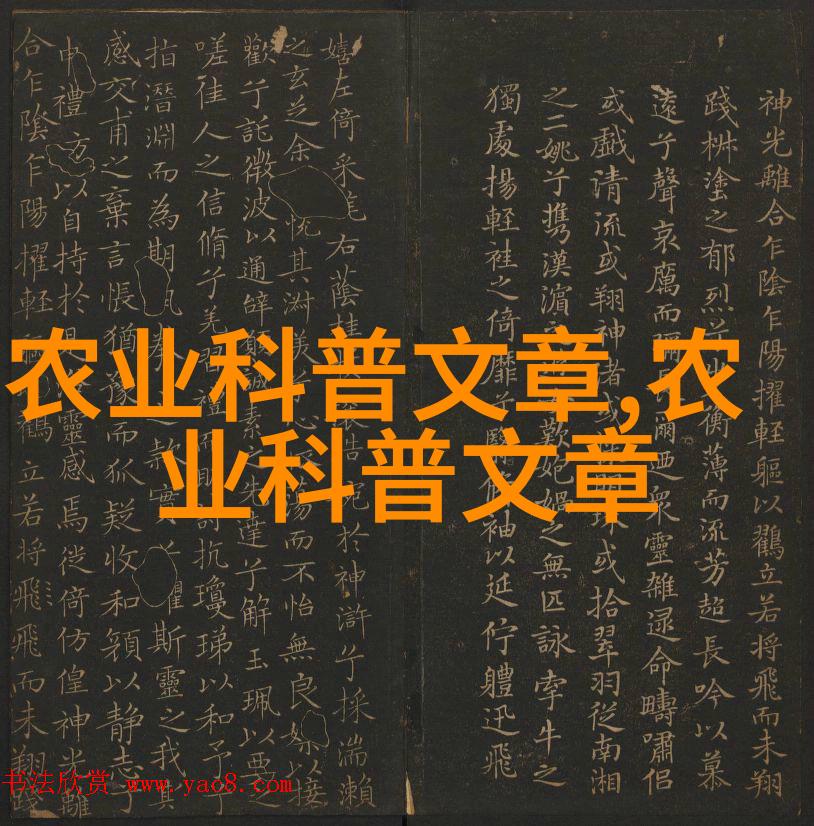 农业科普文章,农
业科普文章
神光離合乍陰乍陽擢輕軀以鸛立若將飛而未翔
踐椒塗之郁烈 衡薄而流芳超長吟以慕
遠兮聲哀厲而 爾迺眾靈雜遝命疇嘯侶
或戲清流或翔神渚或 或拾翠羽從南湘
之二姚兮攜漢濱之 歎 媧之無匹詠牽牛之
獨處揚輕袿之倚靡兮 脩袖以延佇軆迅飛
嬉左倚采旄右蔭桂 於神滸兮採湍瀨
之玄芝余 悅其淑美 心 蕩而不怡無良媒以接
歡兮託微波以通辭願誠素 先達兮解玉珮以要之
嗟佳人之信脩兮羌習禮而明詩抗瓊珶以和予兮
指潛淵而為期 之款實兮懼斯靈之我其
感交甫之棄言悵猶豫而狐疑收和顏以静志兮
申禮方以自持於是 靈感焉徙倚仿偟神光離
合乍陰乍陽擢輕軀 鸛立若將飛飛而未翔踐
书法欣赏 www.yao8.com